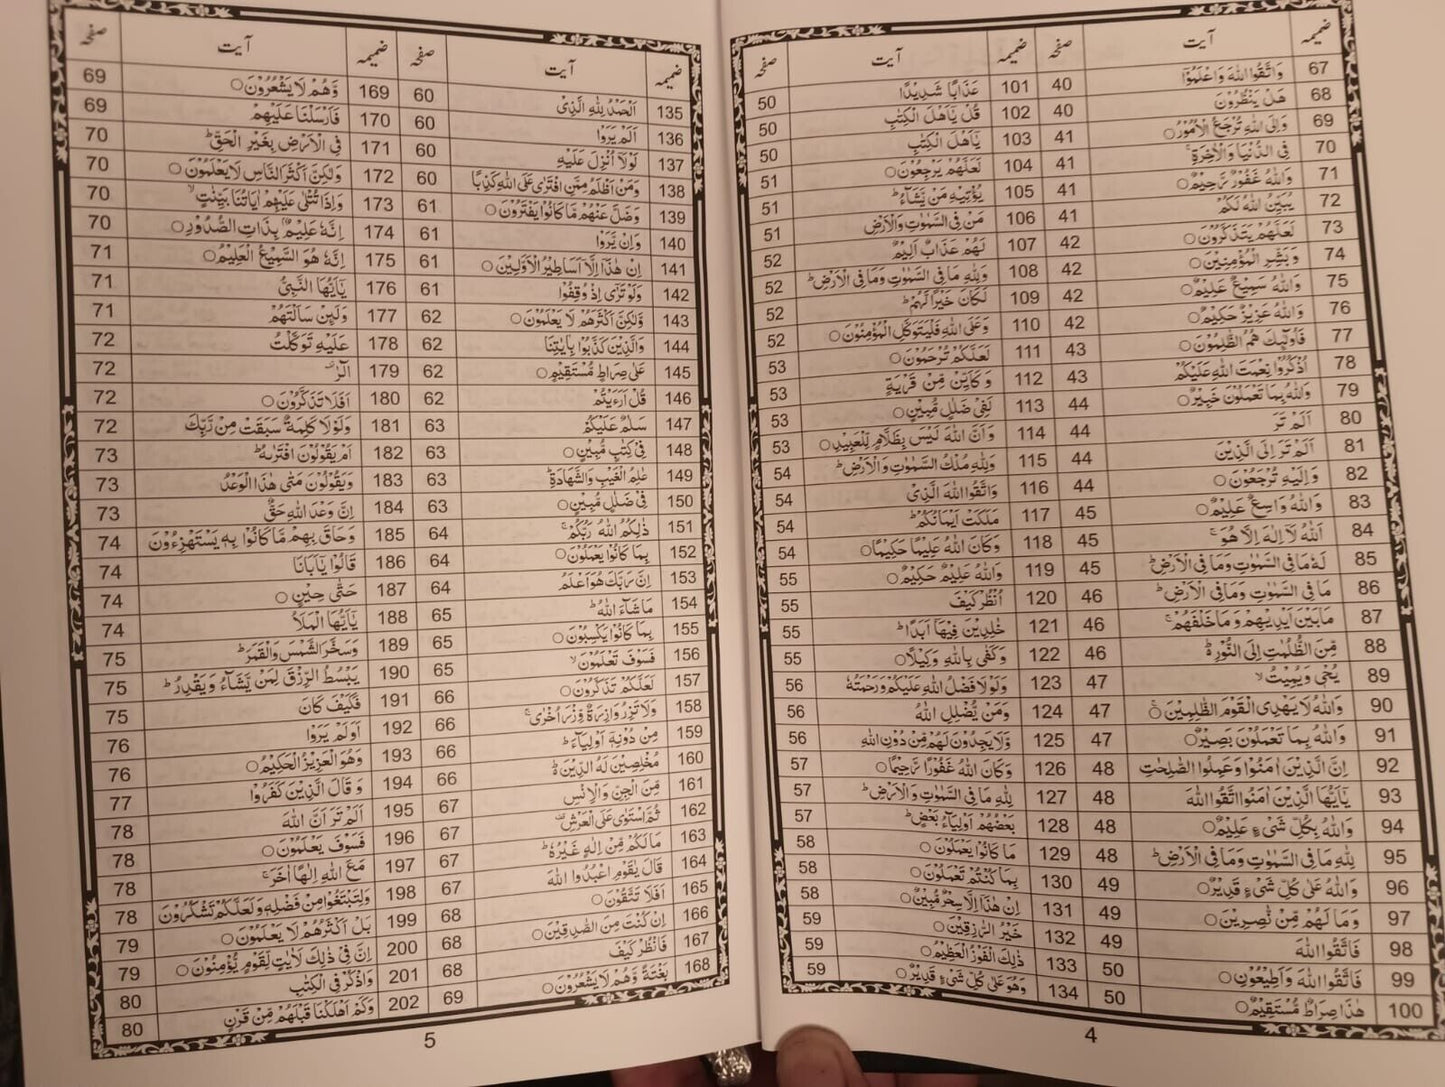 ضمیمہ آیت صفحہ
67 وَاتَّقُوا اللهَ وَاعْلَمُوْٓا 40
68 هَلْ يَنْظُرُوْنَ 40
69 وَاِلَى اللهِ تُرْجَعُ الْاُمُوْرُ 41
70 فِى الدُّنْيَا وَالْاٰخِرَةِ 41
71 وَاللهُ غَفُوْرٌ رَّحِيْمٌ 41
72 يُبَيِّنُ اللهُ لَكُمُ 41
73 لَعَلَّهُمْ يَتَذَكَّرُوْنَ 41
74 وَبَشِّرِ الْمُؤْمِنِيْنَ 42
75 وَاللهُ سَمِيْعٌ عَلِيْمٌ 42
76 وَاللهُ عَزِيْزٌ حَكِيْمٌ 42
77 فَاُولٰٓئِكَ هُمُ الظّٰلِمُوْنَ 42
78 اُذْكُرُوْا نِعْمَتَ اللهِ عَلَيْكُمْ 43
79 وَاللهُ بِمَا تَعْمَلُوْنَ خَبِيْرٌ 43
80 اَلَمْ تَرَ 44
81 اَلَمْ تَرَ اِلَى الَّذِيْنَ 44
82 وَاِلَيْهِ تُرْجَعُوْنَ 44
83 وَاللهُ وَاسِعٌ عَلِيْمٌ 44
84 اَللهُ لَآ اِلٰهَ اِلَّا هُوَ 45
85 لَهٗ مَا فِى السَّمٰوٰتِ وَمَا فِى الْاَرْضِ 45
86 مَا فِى السَّمٰوٰتِ وَمَا فِى الْاَرْضِ 45
87 مَا بَيْنَ اَيْدِيْهِمْ وَمَا خَلْفَهُمْ 46
88 مِّنَ الظُّلُمٰتِ اِلَى النُّوْرِ 46
89 يُحْيٖ وَيُمِيْتُ 46
90 وَاللهُ لَا يَهْدِى الْقَوْمَ الظّٰلِمِيْنَ 47
91 وَاللهُ بِمَا تَعْمَلُوْنَ بَصِيْرٌ 47
92 اِنَّ الَّذِيْنَ اٰمَنُوْا وَعَمِلُوا الصّٰلِحٰتِ 47
93 يٰٓاَيُّهَا الَّذِيْنَ اٰمَنُوا اتَّقُوا اللهَ 48
94 وَاللهُ بِكُلِّ شَىْءٍ عَلِيْمٌ 48
95 لِلّٰهِ مَا فِى السَّمٰوٰتِ وَمَا فِى الْاَرْضِ 48
96 وَاللهُ عَلٰى كُلِّ شَىْءٍ قَدِيْرٌ 48
97 وَمَا لَهُمْ مِّنْ نّٰصِرِيْنَ 49
98 فَاتَّقُوا اللهَ 49
99 فَاتَّقُوا اللهَ وَاَطِيْعُوْنِ 49
100 هٰذَا صِرَاطٌ مُّسْتَقِيْمٌ 50
50
ضمیمہ آیت صفحہ
101 عَذَابًا شَدِيْدًا 50
102 قُلْ يٰٓاَهْلَ الْكِتٰبِ 50
103 يٰٓاَهْلَ الْكِتٰبِ 50
104 لَعَلَّهُمْ يَرْجِعُوْنَ 51
105 يُؤْتِيْهِ مَنْ يَّشَآءُ 51
106 مَنْ فِى السَّمٰوٰتِ وَالْاَرْضِ 51
107 لَهُمْ عَذَابٌ اَلِيْمٌ 52
108 وَلِلّٰهِ مَا فِى السَّمٰوٰتِ وَمَا فِى الْاَرْضِ 52
109 لَكَانَ خَيْرًا لَّهُمْ 52
110 وَعَلَى اللهِ فَلْيَتَوَكَّلِ الْمُؤْمِنُوْنَ 52
111 لَعَلَّكُمْ تُرْحَمُوْنَ 53
112 وَكَاَيِّنْ مِّنْ قَرْيَةٍ 53
113 لَفِىْ ضَلٰلٍ مُّبِيْنٍ 53
114 وَاَنَّ اللهَ لَيْسَ بِظَلَّامٍ لِّلْعَبِيْدِ 53
115 وَلِلّٰهِ مُلْكُ السَّمٰوٰتِ وَالْاَرْضِ 54
116 وَاتَّقُوا اللهَ الَّذِىْ 54
117 مَلَكَتْ اَيْمَانُكُمْ 54
118 وَكَانَ اللهُ عَلِيْمًا حَكِيْمًا 54
119 وَاللهُ عَلِيْمٌ حَكِيْمٌ 55
120 اُنْظُرْ كَيْفَ 55
121 خٰلِدِيْنَ فِيْهَآ اَبَدًا 55
122 وَكَفٰى بِاللهِ وَكِيْلًا 55
123 وَلَوْلَا فَضْلُ اللهِ عَلَيْكُمْ وَرَحْمَتُهٗ 56
124 وَمَنْ يُّضْلِلِ اللهُ 56
125 وَّلَا يَجِدُوْنَ لَهُمْ مِّنْ دُوْنِ اللهِ 56
126 وَكَانَ اللهُ غَفُوْرًا رَّحِيْمًا 57
127 لِلّٰهِ مَا فِى السَّمٰوٰتِ وَمَا فِى الْاَرْضِ 57
128 بَعْضُهُمْ اَوْلِيَآءُ بَعْضٍ 57
129 مَا كَانُوْا يَعْمَلُوْنَ 58
130 بِمَا كُنْتُمْ تَعْمَلُوْنَ 58
131 اِنْ هٰذَآ اِلَّا سِحْرٌ مُّبِيْنٌ 58
132 خَيْرُ الرّٰزِقِيْنَ 59
133 ذٰلِكَ الْفَوْزُ الْعَظِيْمُ 59
134 وَهُوَ عَلٰى كُلِّ شَىْءٍ قَدِيْرٌ 59
4
ضمیمہ آیت صفحہ
135 اَلْحَمْدُ لِلّٰهِ الَّذِىْ 60
136 اَلَمْ يَرَوْا 60
137 لَوْلَآ اُنْزِلَ عَلَيْهِ 60
138 وَمَنْ اَظْلَمُ مِمَّنِ افْتَرٰى عَلَى اللهِ كَذِبًا 60
139 وَضَلَّ عَنْهُمْ مَّا كَانُوْا يَفْتَرُوْنَ 61
140 وَاِنْ يَّرَوْا 61
141 اِنْ هٰذَآ اِلَّآ اَسَاطِيْرُ الْاَوَّلِيْنَ 61
142 وَلَوْ تَرٰٓى اِذْ وُقِفُوْا 61
143 وَّلٰكِنَّ اَكْثَرَهُمْ لَا يَعْلَمُوْنَ 62
144 وَالَّذِيْنَ كَذَّبُوْا بِاٰيٰتِنَا 62
145 عَلٰى صِرَاطٍ مُّسْتَقِيْمٍ 62
146 قُلْ اَرَءَيْتُمْ 62
147 سَلٰمٌ عَلَيْكُمْ 63
148 فِىْ كِتٰبٍ مُّبِيْنٍ 63
149 عٰلِمُ الْغَيْبِ وَالشَّهَادَةِ 63
150 فِىْ ضَلٰلٍ مُّبِيْنٍ 63
151 ذٰلِكُمُ اللهُ رَبُّكُمْ 64
152 بِمَا كَانُوْا يَعْمَلُوْنَ 64
153 اِنَّ رَبَّكَ هُوَ اَعْلَمُ 64
154 مَا شَآءَ اللهُ 65
155 بِمَا كَانُوْا يَكْسِبُوْنَ 65
156 فَسَوْفَ تَعْلَمُوْنَ 65
157 لَعَلَّكُمْ تَذَكَّرُوْنَ 66
158 وَلَا تَزِرُ وَازِرَةٌ وِّزْرَ اُخْرٰى 66
159 مِنْ دُوْنِهٖٓ اَوْلِيَآءَ 66
160 مُخْلِصِيْنَ لَهُ الدِّيْنَ 66
161 مِّنَ الْجِنِّ وَالْاِنْسِ 67
162 ثُمَّ اسْتَوٰى عَلَى الْعَرْشِ 67
163 مَا لَكُمْ مِّنْ اِلٰهٍ غَيْرُهٗ 67
164 قَالَ يٰقَوْمِ اعْبُدُوا اللهَ 67
165 اَفَلَا تَتَّقُوْنَ 68
166 اِنْ كُنْتَ مِنَ الصّٰدِقِيْنَ 68
167 فَانْظُرْ كَيْفَ 68
168 بَغْتَةً وَّهُمْ لَا يَشْعُرُوْنَ 69
ضمیمہ آیت صفحہ
169 وَّهُمْ لَا يَشْعُرُوْنَ 69
170 فَاَرْسَلْنَا عَلَيْهِمْ 69
171 فِى الْاَرْضِ بِغَيْرِ الْحَقِّ 70
172 وَلٰكِنَّ اَكْثَرَ النَّاسِ لَا يَعْلَمُوْنَ 70
173 وَاِذَا تُتْلٰى عَلَيْهِمْ اٰيَاتُنَا بَيِّنٰتٍ 70
174 اِنَّهٗ عَلِيْمٌۢ بِذَاتِ الصُّدُوْرِ 70
175 اِنَّهٗ هُوَ السَّمِيْعُ الْعَلِيْمُ 71
176 يٰٓاَيُّهَا النَّبِىُّ 71
177 وَلَئِنْ سَاَلْتَهُمْ 71
178 عَلَيْهِ تَوَكَّلْتُ 72
179 الٓرٰ 72
180 اَفَلَا تَذَكَّرُوْنَ 72
181 وَلَوْلَا كَلِمَةٌ سَبَقَتْ مِنْ رَّبِّكَ 72
182 اَمْ يَقُوْلُوْنَ افْتَرٰىهُ 73
183 وَيَقُوْلُوْنَ مَتٰى هٰذَا الْوَعْدُ 73
184 اِنَّ وَعْدَ اللهِ حَقٌّ 73
185 وَحَاقَ بِهِمْ مَّا كَانُوْا بِهٖ يَسْتَهْزِءُوْنَ 74
186 قَالُوْا يٰٓاَبَانَا 74
187 حَتّٰى حِيْنٍ 74
188 يٰٓاَيُّهَا الْمَلَاُ 74
189 وَسَخَّرَ الشَّمْسَ وَالْقَمَرَ 75
190 يَبْسُطُ الرِّزْقَ لِمَنْ يَّشَآءُ وَيَقْدِرُ 75
191 فَكَيْفَ كَانَ 75
192 اَوَلَمْ يَرَوْا 76
193 وَهُوَ الْعَزِيْزُ الْحَكِيْمُ 76
194 وَقَالَ الَّذِيْنَ كَفَرُوْا 77
195 اَلَمْ تَرَ اَنَّ اللهَ 78
196 فَسَوْفَ يَعْلَمُوْنَ 78
197 مَعَ اللهِ اِلٰهًا اٰخَرَ 78
198 وَلِتَبْتَغُوْا مِنْ فَضْلِهٖ وَلَعَلَّكُمْ تَشْكُرُوْنَ 78
199 بَلْ اَكْثَرُهُمْ لَا يَعْلَمُوْنَ 79
200 اِنَّ فِىْ ذٰلِكَ لَاٰيٰتٍ لِّقَوْمٍ يُّؤْمِنُوْنَ 79
201 وَاذْكُرْ فِى الْكِتٰبِ 80
202 وَكَمْ اَهْلَكْنَا قَبْلَهُمْ مِّنْ قَرْنٍ 80
5